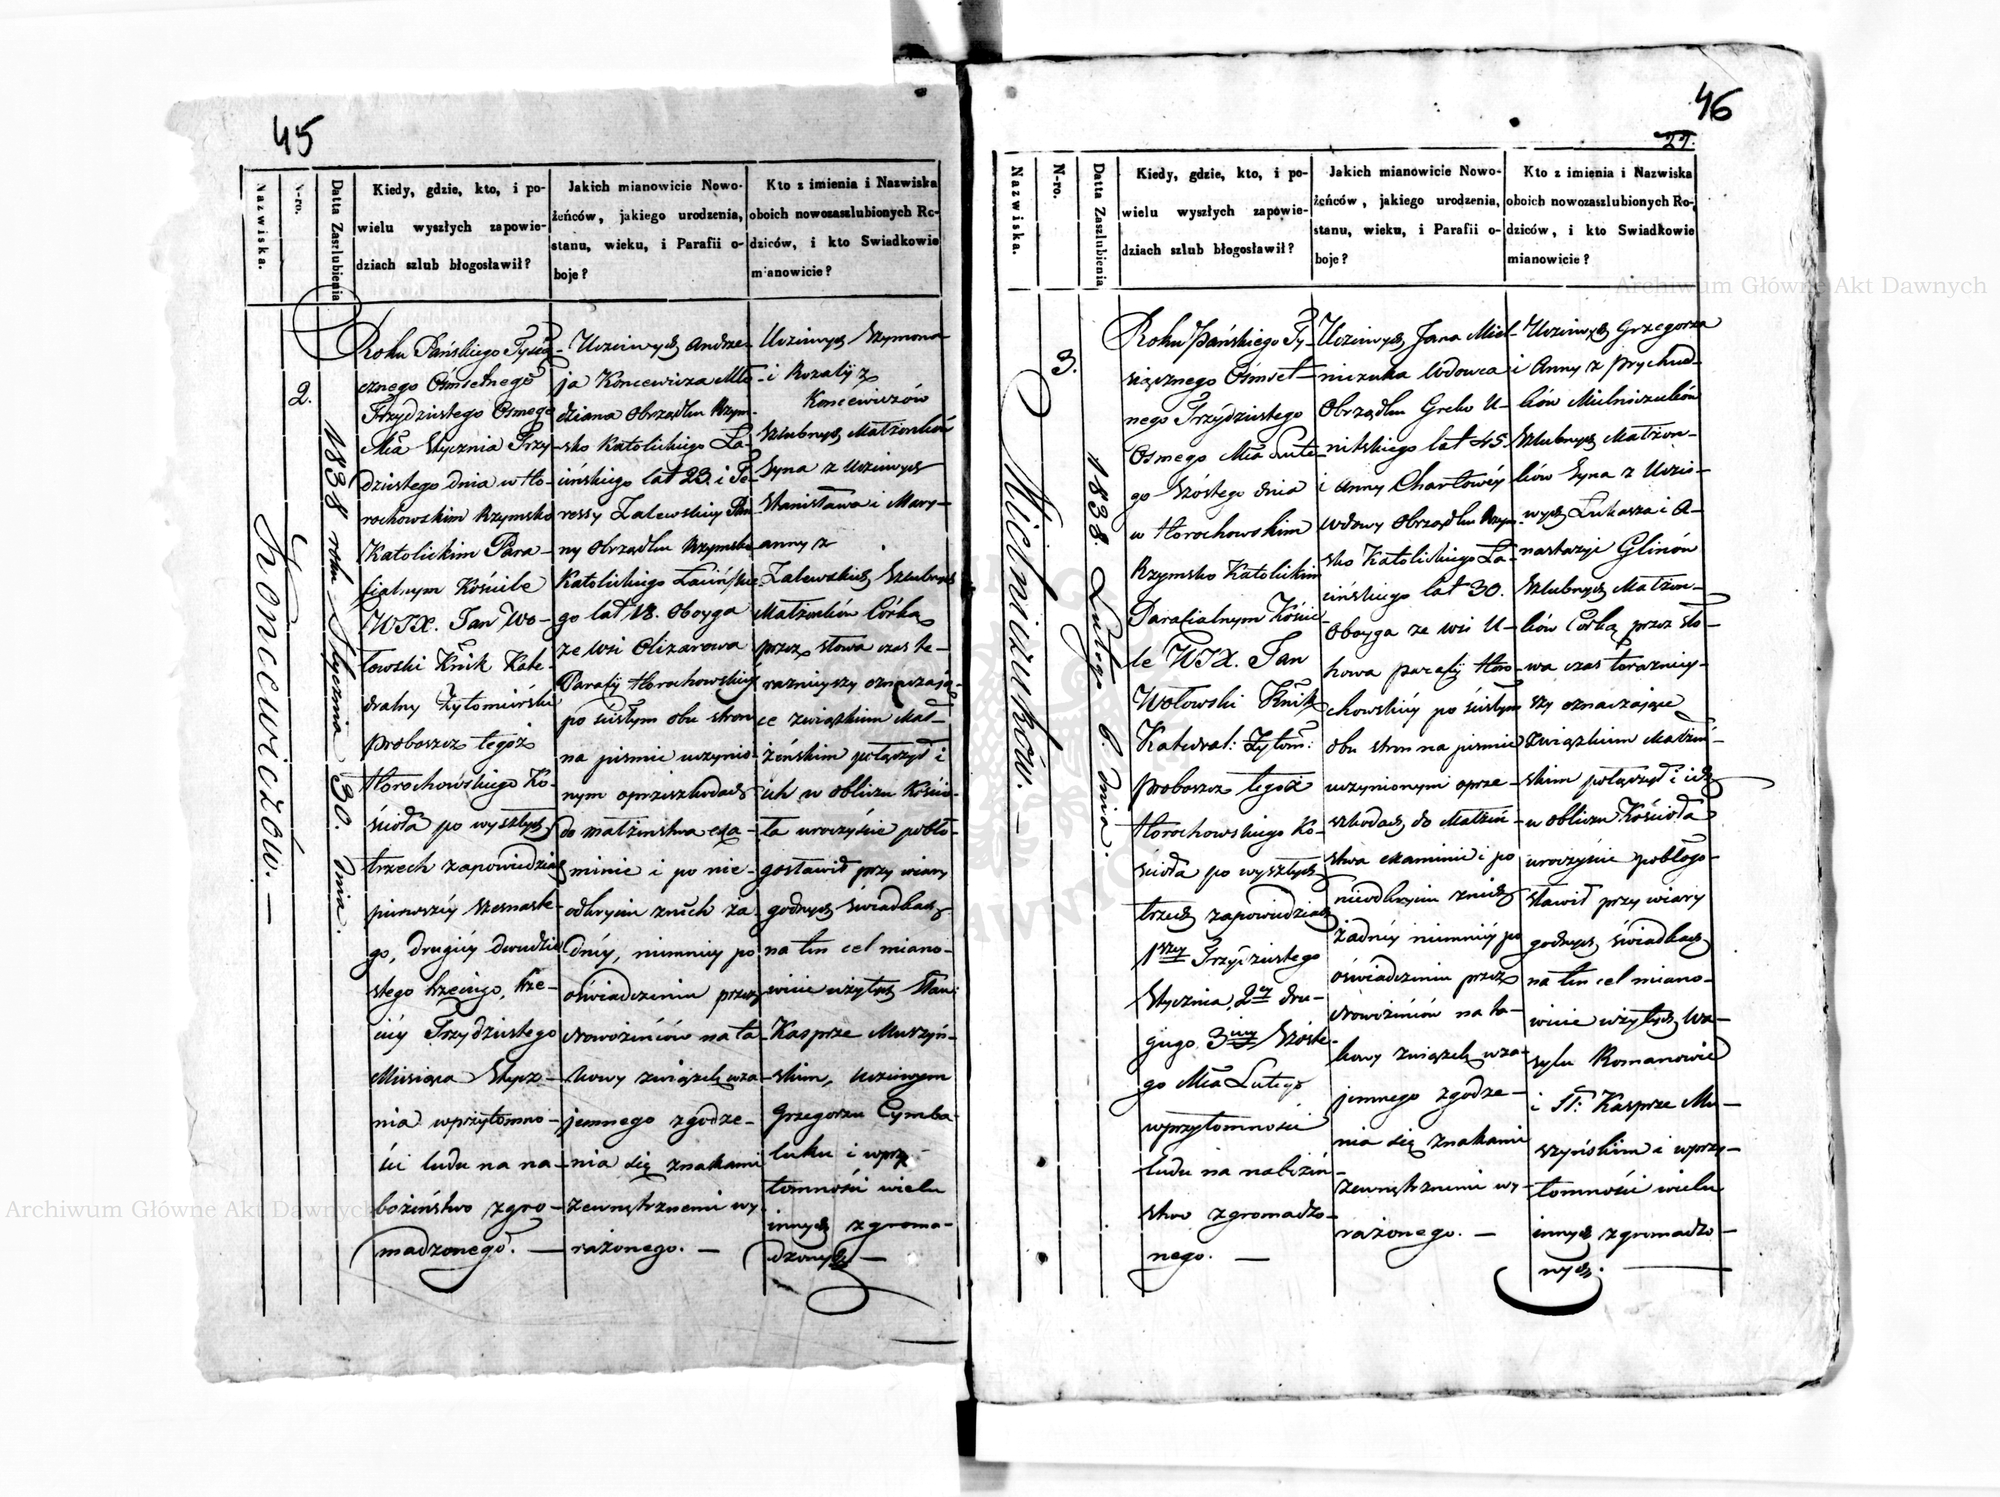 45
Nazwiska.
N-ro.
Datta Zaszlubienia
Kiedy, gdzie, kto, i po-
wielu wyszłych zapowie-
dziach szlub błogosławił?
Jakich mianowicie Nowo-
żeńców, jakiego urodzenia,
stanu, wieku, i Parafii o-
boje?
Kto z imienia i Nazwiska
oboich nowozaszlubionych Ro-
dziców, i kto Swiadkowie
mianowicie?
Koncewiczów.
2.
1838 roku Stycznia 30. dnia.
Roku Pańskiego Tysią-
cznego Ośmsetnego
Trzydziestego Osmego
Mca Stycznia Trzy-
dziestego dnia w Ho-
rochowskim Rzymsko
Katolickim Para-
fialnym Kościele
WJX. Jan Wo-
łowski Knik Kate-
dralny Żytomirski
Proboszcz tegoż
Horochowskiego Ko-
ścioła po wyszłych
trzech zapowiedziach
pierwszéy Szesnaste-
go, drugiéy dwudzie-
stego trzeciego, trze-
ciéy Trzydziestego
Miesiąca Stycz-
nia w przytomno-
ści ludu na na-
bożeństwo zgro-
madzonego. —
Uczciwych Andrze-
ja Koncewicza Mło-
dziana Obrządku Rzym-
sko Katolickiego Ła-
cińskiego lat 23. i Te-
ressy Zalewskiey Pan-
ny Obrządku Rzymsko
Katolickiego Łacińskie-
go lat 18. Oboyga
ze wsi Olizarowa
Parafij Horochowskiey
po ścisłym obu stron
na piśmie uczynio-
nym o przeszkodach
do małżeństwa exa-
minie i po nie-
odkryciu z nich ża-
dnéy, niemniey po
oświadczeniu przez
Nowożeńców na ta-
kowy związek wza-
jemnego zgodze-
nia się znakami
zewnętrznemi wy-
rażonego. —
Uczciwych Szymona
i Rozalij z
Koncewiczów
Szlubnych Małżonków
Syna z Uczciwych
Stanisława i Mary-
anny z
Zalewskich Szlubnych
Małżonków Córką
przez słowa czas te-
razniejszy oznaczają-
ce związkiem Mał-
żeńskim połączył i
ich w obliczu Kościo-
ła uroczyście pobło-
gosławił przy wiary
godnych świadkach
na ten cel miano-
wicie użytych
Kasprze Muszyń-
skim, Uczciwym
Grzegorzu Cymba-
luku i w przy-
tomności wielu
innych zgroma-
dzonych —
46
27.
Nazwiska.
N-ro.
Datta Zaszlubienia
Kiedy, gdzie, kto, i po-
wielu wyszłych zapowie-
dziach szlub błogosławił?
Jakich mianowicie Nowo-
żeńców, jakiego urodzenia,
stanu, wieku, i Parafii o-
boje?
Kto z imienia i Nazwiska
oboich nowozaszlubionych Ro-
dziców, i kto Swiadkowie
mianowicie?
Mielniczuków. —
3.
1838 Lutego 6. dnia.
Roku Pańskiego Ty-
siącznego Ośmset-
nego Trzydziestego
Osmego Mca Lute-
go Szóstego dnia
w Horochowskim
Rzymsko Katolickim
Parafialnym Koście-
le WJX. Jan
Wołowski Knik
Katedral: Żytom:
Proboszcz tegoż
Horochowskiego Ko-
ścioła po wyszłych
trzech zapowiedziach
1szey Trzydziestego
Stycznia, 2ey dru-
giego 3ciey Szóste-
go Mca Lutego
w przytomności
ludu na nabożeń-
stwo zgromadzo-
nego. —
Uczciwych Jana Miel-
niczuka Wdowca
Obrządku Greko U-
nitskiego lat 45.
i Anny Charłowéy
wdowy Obrządku Rzym-
sko Katolickiego Ła-
cińskiego lat 30.
Oboyga ze wsi U-
howa parafij Horo-
chowskiéy po ścisłym
obu stron na piśmie
uczynionym o prze-
szkodach do Małżeń-
stwa examinie i po
nieodkryciu z nich
żadnéy niemniéy po
oświadczeniu przez
Nowożeńców na ta-
kowy związek wza-
jemnego zgodze-
nia się znakami
zewnętrznemi wy-
rażonego. —
Uczciwych Grzegorza
i Anny z Prychud-
ków Mielniczuków
Szlubnych Małżon-
ków Syna z Uczci-
wych Łukasza i A-
nastazyi Glinów
Szlubnych Małżon-
ków Córką przez sło-
wa czas terazniey-
szy oznaczające
związkiem Małżeń-
skim połączył i ich
w obliczu Kościoła
uroczyście pobłogo-
sławił przy wiary
godnych świadkach
na ten cel miano-
wicie użytych, Wa-
sylu Romanowie
i Kasprze Mu-
szyńskim i w przy-
tomności wielu
innych zgromadzo-
nych. —
Archiwum Główne Akt Dawnych
Archiwum Główne Akt Dawnych